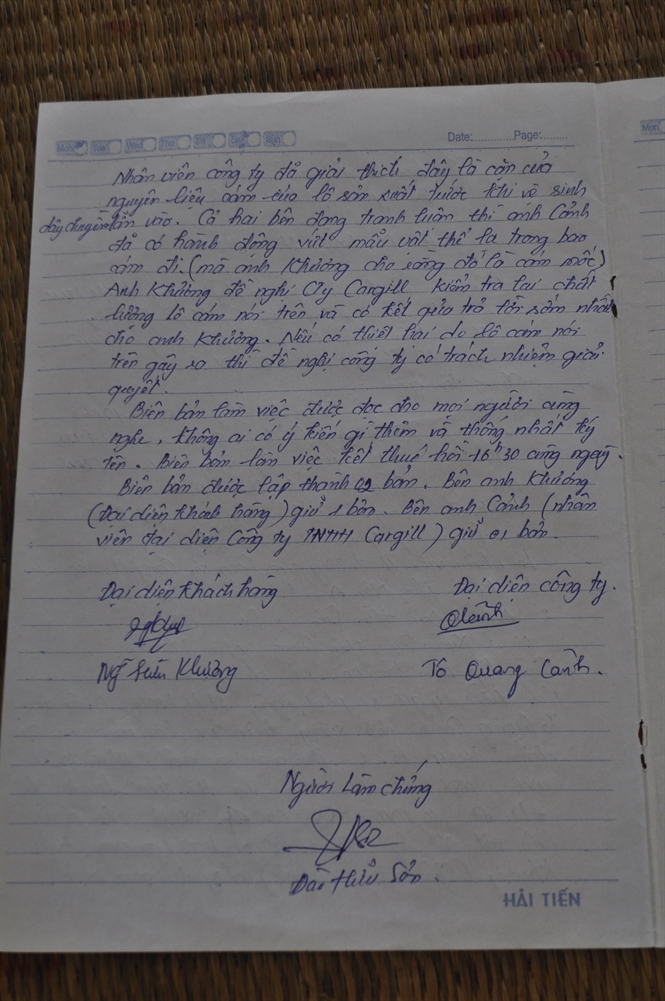 Mon Tue Wed Thu Fri Sat Sun Date:............Page:........
Mon
Nhân viên công ty đã giải thích đây là cặn của
nguyên liệu cám của lô sản xuất trước khi vệ sinh
dây chuyền lẫn vào. Cả hai bên đang tranh luận thì anh Cảnh
đã có hành động vứt mẫu vật thể lạ trong bao
cám đi. (mà anh Khương cho rằng đó là cám mốc)
Anh Khương đề nghị Cty Cargill kiểm tra lại chất
lượng lô cám nói trên và có kết quả trả lời sớm nhất
cho anh Khương. Nếu có thiệt hại do lô cám nói
trên gây ra thì đề nghị công ty có trách nhiệm giải
quyết.
Biên bản làm việc được đọc cho mọi người cùng
nghe, không ai có ý kiến gì thêm và thống nhất ký
tên. Biên bản làm việc kết thúc hồi 16h30 cùng ngày.
Biên bản được lập thành 02 bản. Bên anh Khương
(Đại diện khách hàng) giữ 1 bản. Bên anh Cảnh (nhân
viên đại diện Công ty TNHH Cargill) giữ 01 bản.
Đại diện khách hàng Đại diện công ty.
Cảnh
Khương Tô Quang Cảnh.
Người làm chứng
Hữu Sơn.
HẢI TIẾN